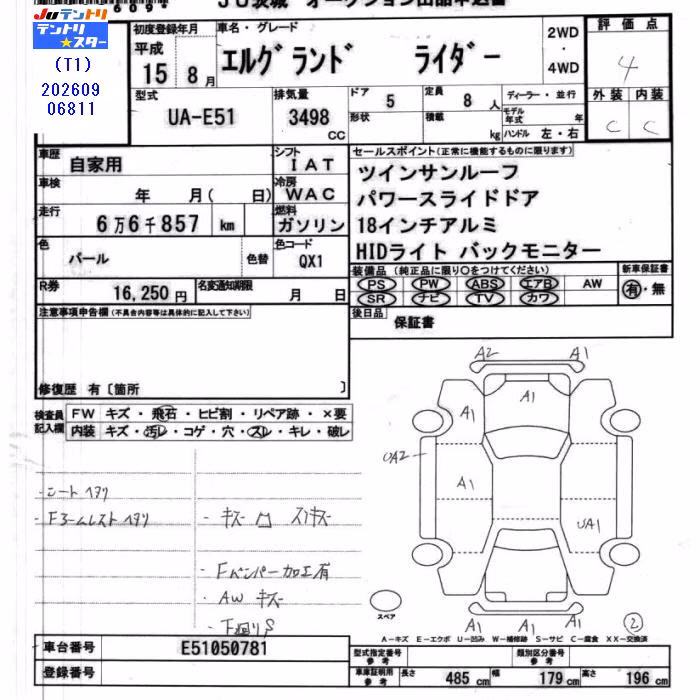 JU茨城 オークション出品申込書
JUテントリ
テントリ★スター
(T1)
202609
06811
初度登録年月
平成
15年 8月
車名・グレード
エルグランド ライダー
2WD
・
4WD
評価点
4
外装 内装
C C
型式
UA-E51
排気量
3498
CC
ドア 5
形状
定員 8人
積載 kg
ディーラー・並行
モデル年式 年
ハンドル 左・右
車歴
自家用
シフト
IAT
車検
年 月( 日)
冷房
WAC
走行
6万6千857 km
燃料
ガソリン
色
パール
色替
色コード
QX1
R券
16,250円
名変通知期限
月 日
セールスポイント(正常に機能するものに限ります)
ツインサンルーフ
パワースライドドア
18インチアルミ
HIDライト バックモニター
装備品(純正品に限り○をつけてください)
PS PW ABS エアB AW
SR ナビ TV カワ
新車保証書
有・無
後日品
保証書
注意事項申告欄(不具合内容等は具体的に記入して下さい)
修復歴 有〔箇所 〕
検査員
記入欄
FW キズ・飛石・ヒビ割・リペア跡・×要
内装 キズ・汚レ・コゲ・穴・スレ・キレ・破レ
・シートヘタリ
・Fアームレストヘタリ
・キズ 凹 スリキズ
・Fバンパー加工有
・AW キズ
・下廻りS
A2 A1
A1
A1
UA2
A1
UA1
A1 A1
A1
スペア
②
A-キズ E-エクボ U-凹み W-補修跡 S-サビ C-腐食 XX-交換済
車台番号
E51050781
登録番号
型式指定番号
参考
類別区分番号
参考
車庫証明用
参考
長さ 485cm 幅 179cm 高さ 196cm